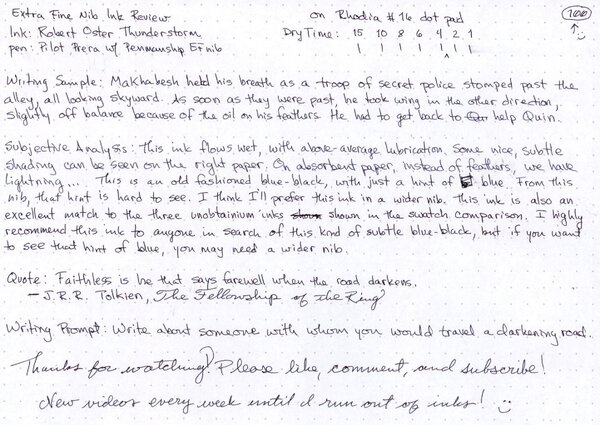 Extra Fine Nib Ink Review on Rhodia #16 dot pad 166
Ink: Robert Oster Thunderstorm Dry Time: 15 10 8 6 4 2 1
pen: Pilot Prera w/ Penmanship EF nib
Writing Sample: Makhabesh held his breath as a troop of secret police stomped past the
alley, all looking skyward. As soon as they were past, he took wing in the other direction,
slightly off balance because of the oil on his feathers. He had to get back to help Quin.
Subjective Analysis: This ink flows wet, with above-average lubrication. Some nice, subtle
shading can be seen on the right paper. On absorbent paper, instead of feathers, we have
lightning... This is an old fashioned blue-black, with just a hint of blue. From this
nib, that hint is hard to see. I think I'll prefer this ink in a wider nib. This ink is also an
excellent match to the three unobtainium inks shown shown in the swatch comparison. I highly
recommend this ink to anyone in search of this kind of subtle blue-black, but if you want
to see that hint of blue, you may need a wider nib.
Quote: Faithless is he that says farewell when the road darkens.
— J.R.R. Tolkien, The Fellowship of the Ring
Writing Prompt: Write about someone with whom you would travel a darkening road.
Thanks for watching! Please like, comment, and subscribe!
New videos every week until I run out of inks! :)